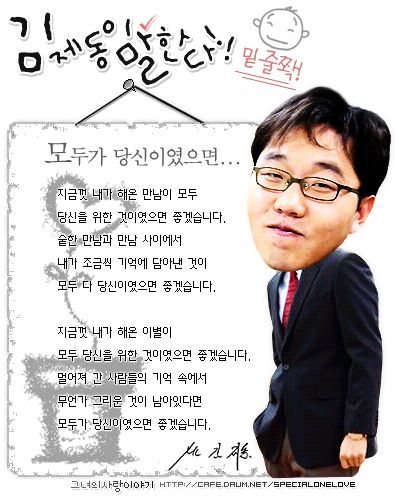 김제동이 말한다!!
밑줄쫙!
모두가 당신이였으면...
지금껏 내가 해온 만남이 모두
당신을 위한 것이였으면 좋겠습니다.
숱한 만남과 만남 사이에서
내가 조금씩 기억에 담아낸 것이
모두 다 당신이였으면 좋겠습니다.
지금껏 내가 해온 이별이
모두 당신을 위한 것이였으면 좋겠습니다.
멀어져 간 사람들의 기억 속에서
무언가 그리운 것이 남아있다면
모두가 당신이였으면 좋겠습니다.
그녀의사랑이야기 HTTP://CAFE.DAUM.NET/SPECIALONELOVE